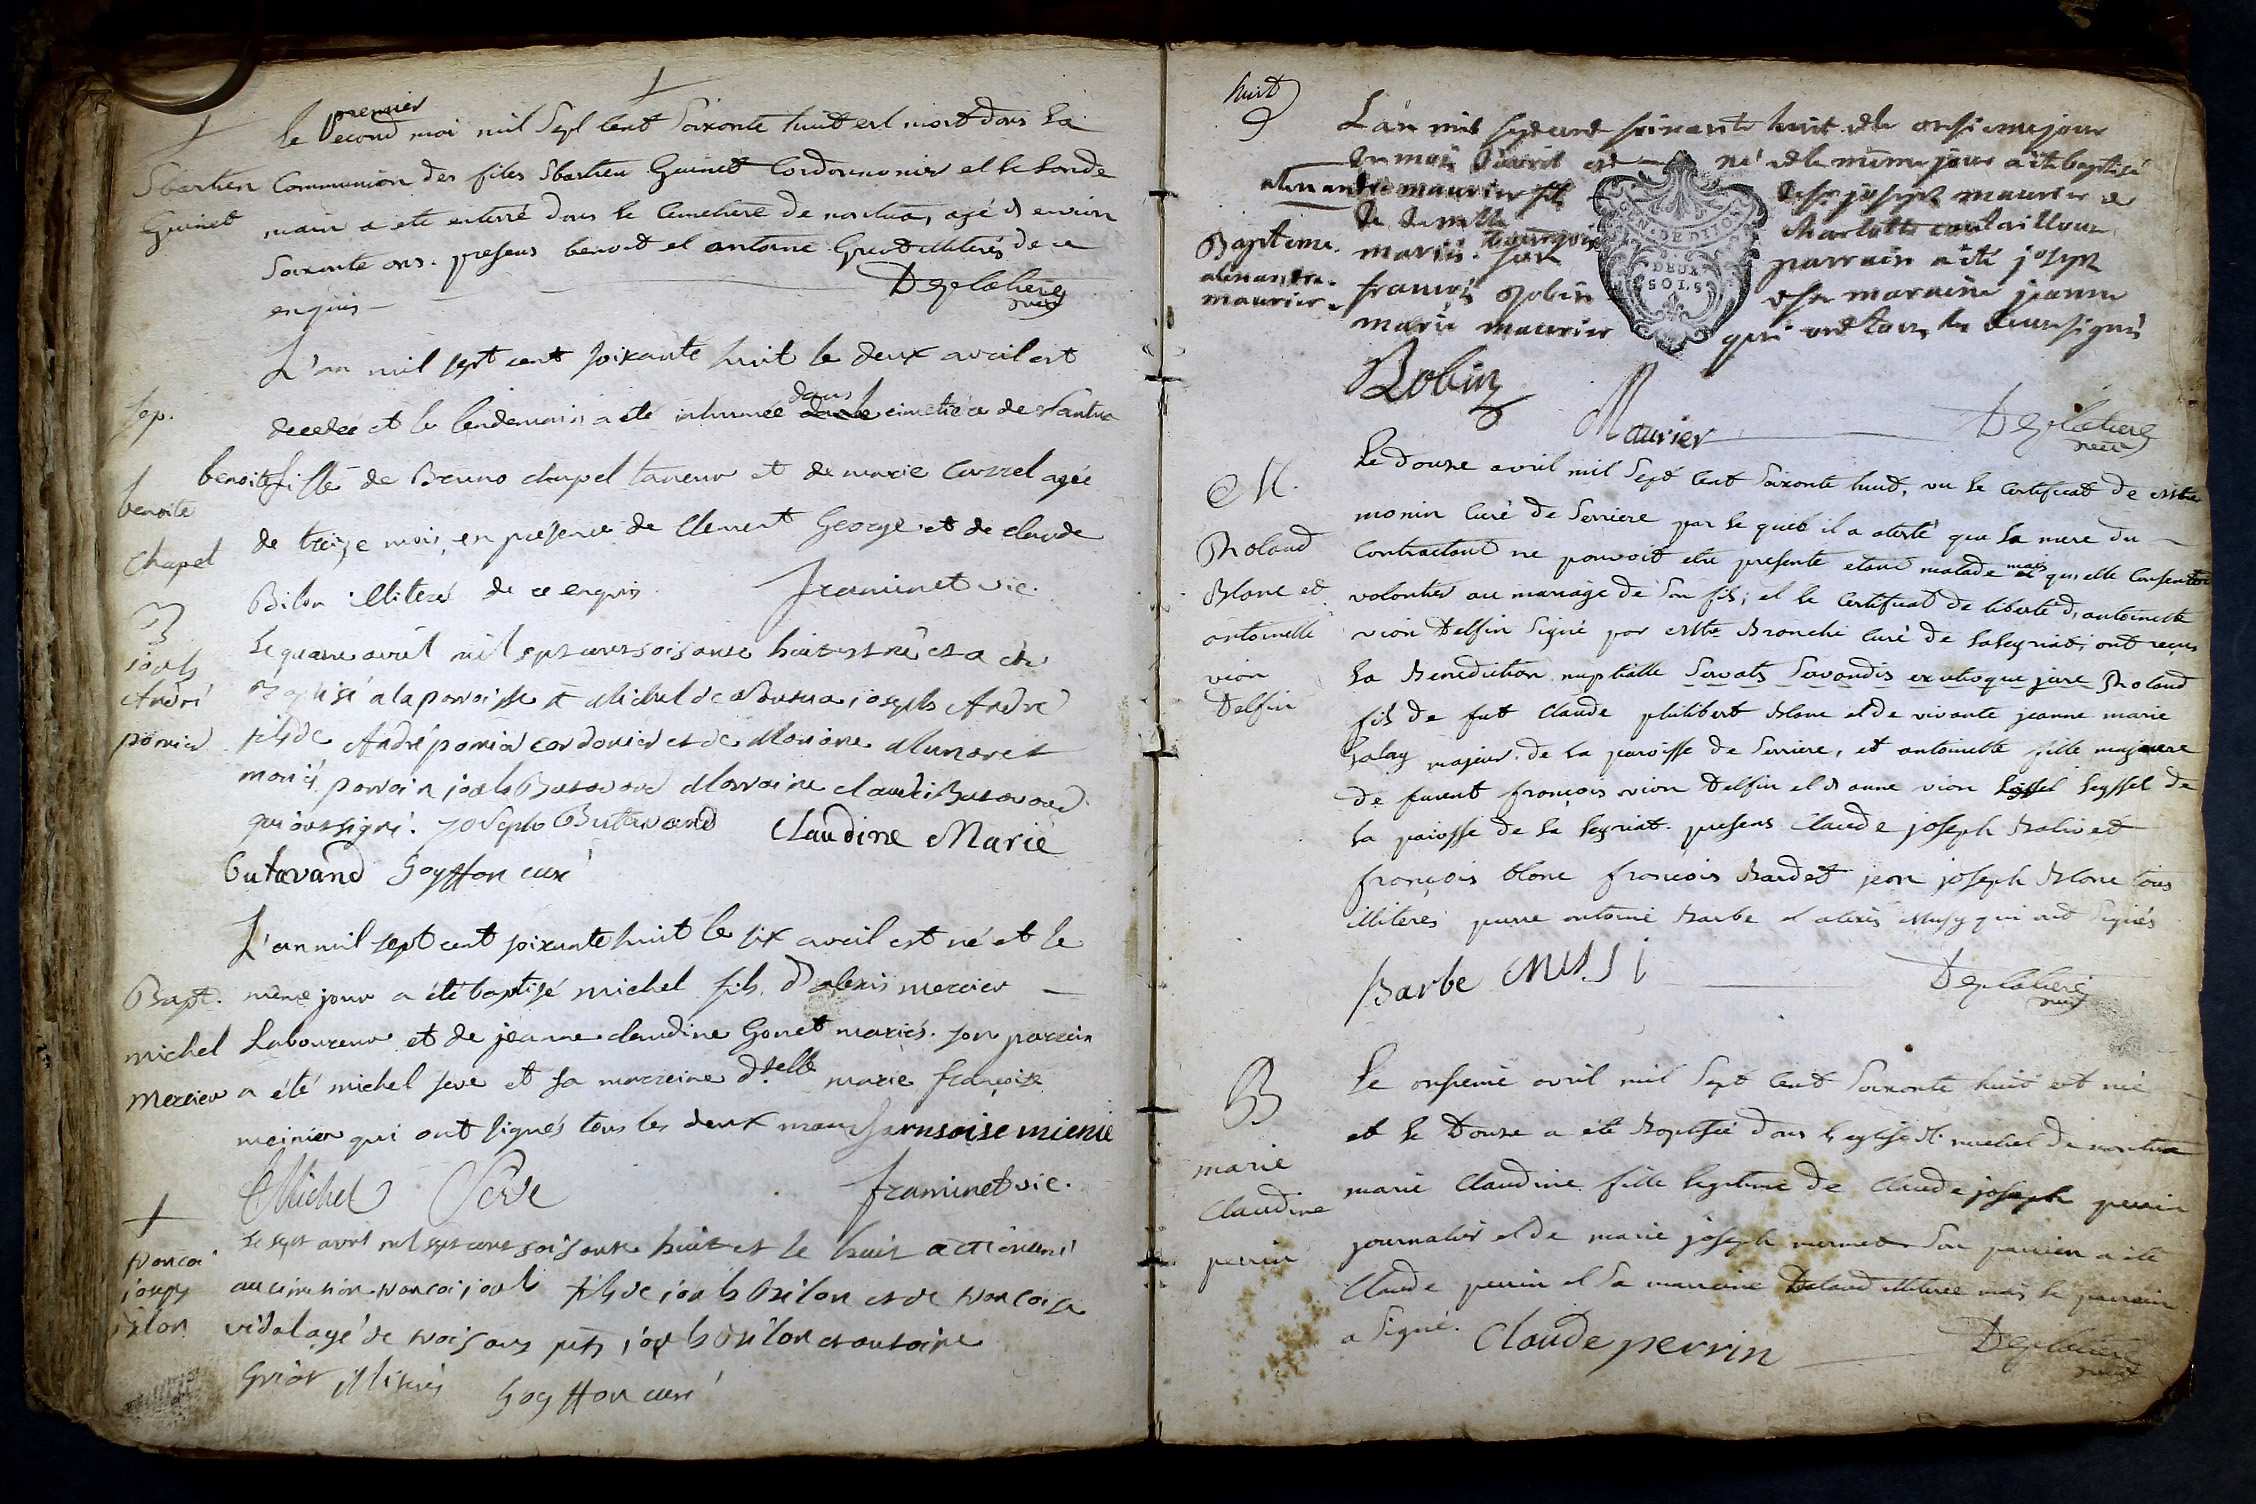 le second premier mai mil sept cent soixante huit est mort dans la
Sbastien communion des files Sbastien Guinet cordonnonier et le lende
Guinet main a ete enterré dans le cimetiere de nantua, agé d environ
soixante ans. presens benoit et antoine illiterés de ce
enquis — Deplatiere
L'an mil sept cent soixante huit le deux avril est
Sep. decedée et le lendemain a été inhumée dans le cimetiere de Nantua
benoite fille de Bruno chapel taneur et de marie agée
benoite
chapel de treize mois, en présence de Clement George et de claude
Bilon illiteré de ce enquis. framinet vic.
B
joseph
André
ponier
le quatre avril mil sept cent soisante huit est né et a été
Baptisé a la paroisse st Michel de Nantua joseph André
fils de André ponier cordonier et de Mariane
mariés parrain joseph Butavand Marraine claudi Butavand
qui ont signé. joseph Butavand Claudine Marie
butavand Goyffon curé
L'an mil sept cent soixante huit le six avril est né et le
Bapt. même jour a été baptisé michel fils d'alexis mercier —
michel Laboureur et de jeanne claudine Gonet mariés. son parrain
Mercier a été michel seve et sa marreine dselle marie françoise
meinier qui ont signés tous les deux
Michel Serve framinet vic.
le sept avril mil sept cent soisante huit et le huit a été
au cimetiere francoi joseph fils de joseph Bilon et de francoise
francoi
joseph
bilon
vidal agé de trois ans pnts joseph Bilon et antoine
illiterés Goyffon curé
huit
L'an mil sept cent soixante huit et le onsiemme jour
du mois d'avril est né et le meme jour a été baptisé
alexandre maurier fils de sr joseph maurier et
de demlle charlotte coutaillour
Baptême. mariés. son parrain a été joseph
alexandre françois Robin et sa maraine jeanne
maurier marie maurier qui ont tous les deux signés
GEN. DE DIJON
DEUX
SOLS
Robin Maurier Deplatiere
M.
Roland
Blanc et
antoinette
vion
Delfin
Le douze avril mil sept cent soixante huit, vu le certificat de Mstre
monin curé de Serriere par le quel il a atesté que la mere du
contractant ne pouvoit etre presente etant malade mais qu'elle consentoit
volontier au mariage de son fils; et le certificat de liberté d'antoinette
vion Delfin signé par Mstre Bronche curé de laleyriat, ont reçus
la Benediction nuptialle servatis servandis ex utroque jure Roland
fils de fut Claude philibert Blanc et de vivante jeanne marie
majeur de la paroisse de Serriere, et antoinette fille majeure
de furent françois vion Delfin et d anne vion Seyssel de
la paroisse de la leyriat. presens Claude joseph et
françois blanc françois Bardet jean joseph Blanc tous
illiterés pierre antoine Barbe et alexis Mussy qui ont signés
Barbe Mussi Deplatiere
B
marie
Claudine
perrin
Le onsieme avril mil sept cent soixante huit est née
et le Douze a été Baptisée dans l'eglise st. michel de nantua
marie Claudine fille legitime de Claude joseph perrin
journalier et de marie joseph mermet son parrein a été
Claude perrin et sa marraine illiterée mais le parrain
a signé. Claude perrin Deplatiere